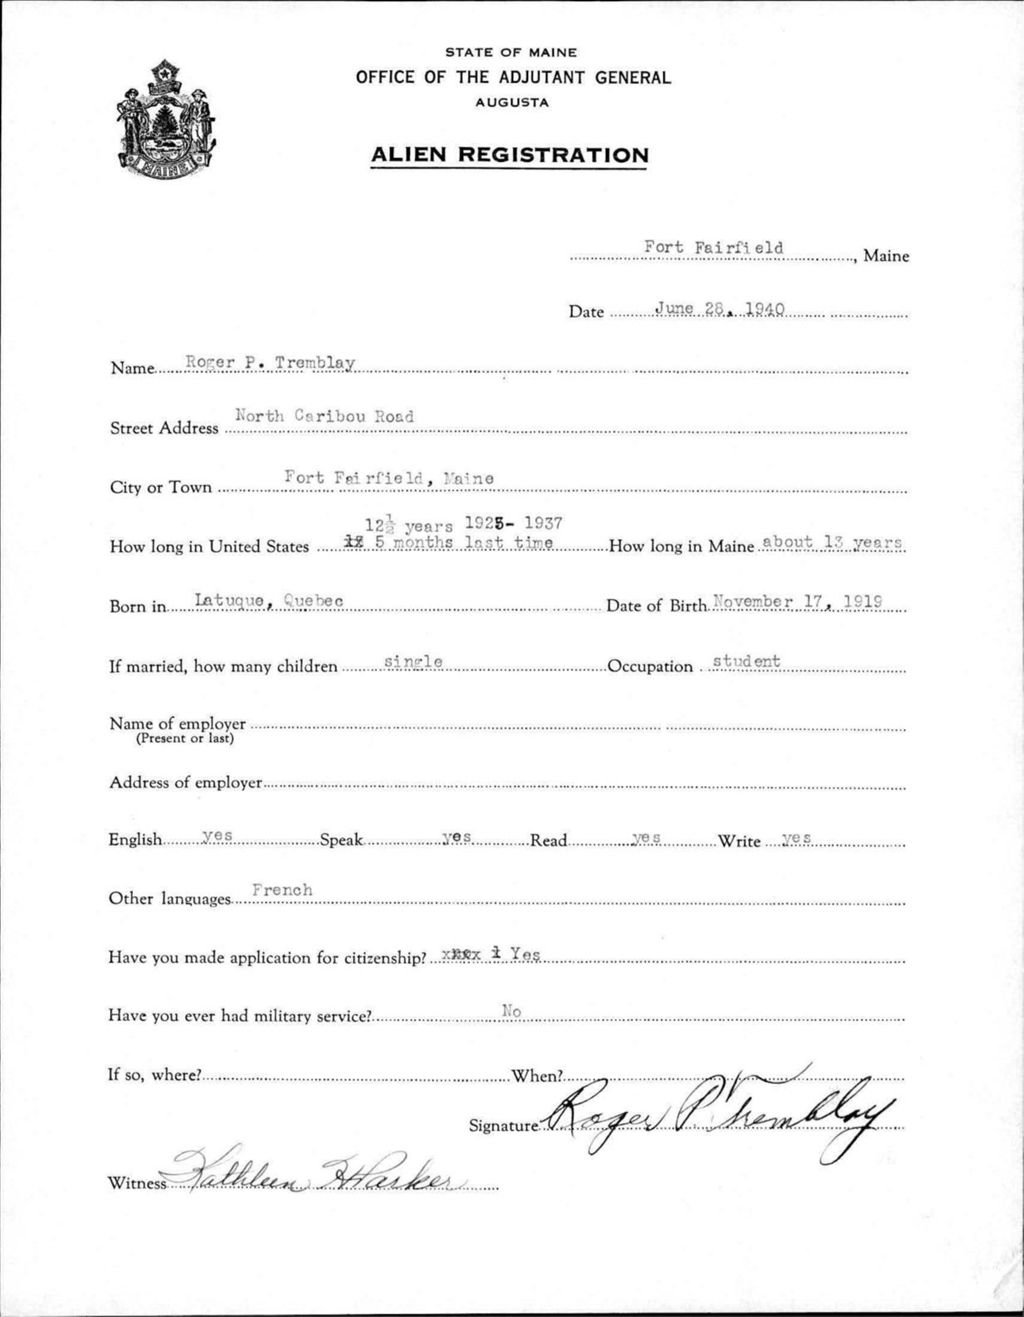 STATE OF MAINE
OFFICE OF THE ADJUTANT GENERAL
AUGUSTA
ALIEN REGISTRATION
MAINE
Fort Fairfield, Maine
Date June 28, 1940
Name Roger P. Tremblay
Street Address North Caribou Road
City or Town Fort Fairfield, Maine
12½ years 1925- 1937
How long in United States 5 months last time How long in Maine about 13 years
Born in Latuque, Quebec Date of Birth November 17, 1919
If married, how many children single Occupation student
Name of employer
(Present or last)
Address of employer
English yes Speak yes Read yes Write yes
Other languages French
Have you made application for citizenship? Yes
Have you ever had military service? No
If so, where? When?
Signature Roger P. Tremblay
Witness Kathleen H Parker